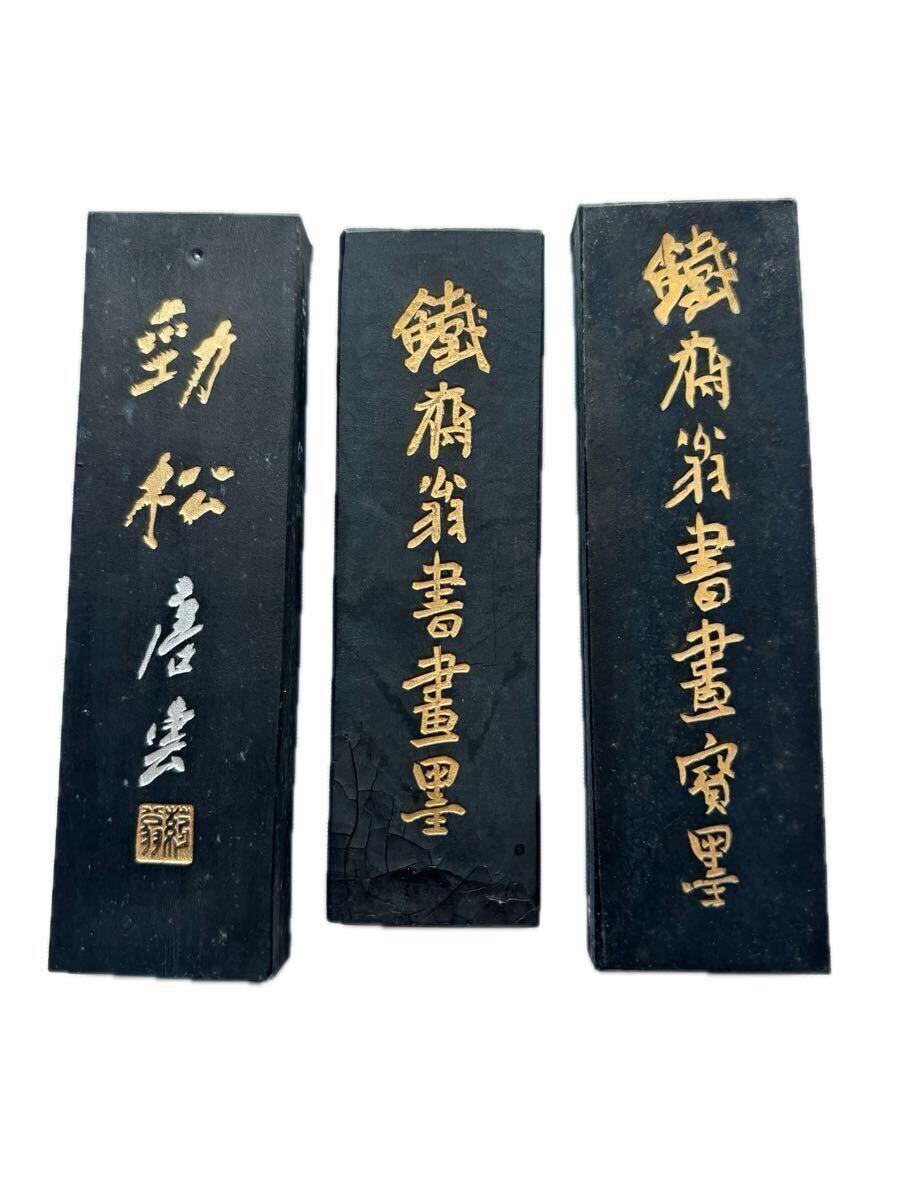 勁松
唐雲
药翁
鐵齋翁書畫墨
鐵齋翁書畫寶墨